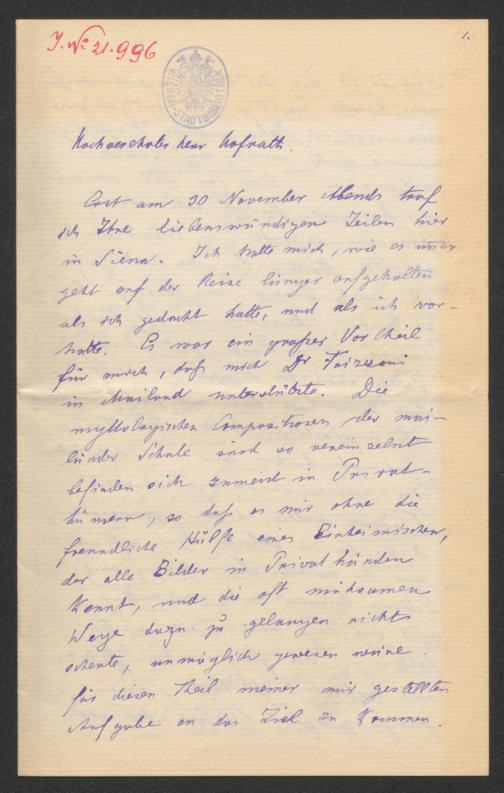 J. Nº 21.996
1.
WIENER STADTBIBLIOTHEK
Hochgeehrter Herr Hofrath.
Erst am 30 November Abends traf
ich Ihre liebenswürdigen Zeilen hier
in Siena. Ich hatte mich, wie es immer
geht auf der Reise länger aufgehalten
als ich gedacht hatte, und als ich vor-
hatte. Es war ein großer Vortheil
für mich, daß mich Dr
in Mailand unterstützte. Die
mythologischen Compositionen der mai-
länder Schule sind so vereinzelt
befinden sich zumeist in Privat-
häusern, so daß es mir ohne die
freundliche Hülfe eines Einheimischen,
der alle Bilder in Privathänden
kennt, und die oft mühsamen
Wege dazu zu gelangen nicht
scheute, unmöglich gewesen wäre
für diesen Theil meiner mir gestellten
Aufgabe an das Ziel zu kommen.